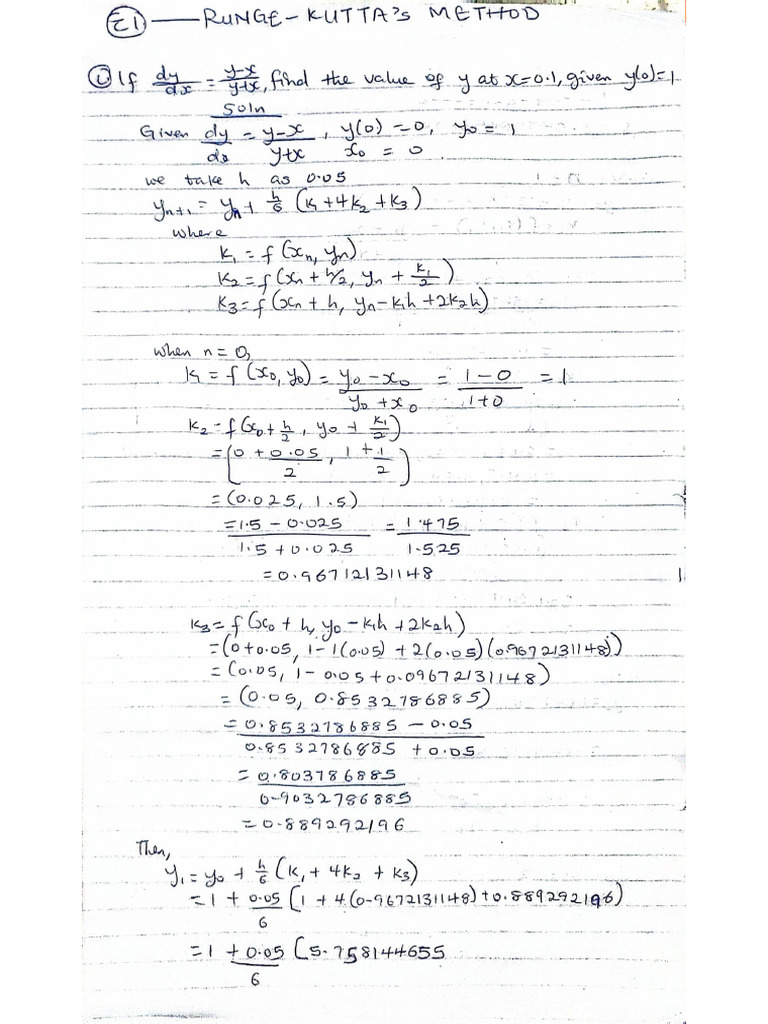 E1 — RUNGE-KUTTA's METHOD
(i) If dy/dx = y-x/y+x, find the value of y at x=0.1, given y(0)=1
Soln
Given dy/dx = y-x/y+x, y(0)=0, y0=1
x0 = 0
we take h as 0.05
yn+1 = yn + h/6 (k1+4k2+k3)
where
k1 = f(xn, yn)
k2 = f(xn + h/2, yn + k1/2)
k3 = f(xn + h, yn - k1h + 2k2h)
when n=0,
k1 = f(x0, y0) = y0-x0/y0+x0 = 1-0/1+0 = 1
k2 = f(x0 + h/2, y0 + k1/2)
= (0 + 0.05/2, 1 + 1/2)
= (0.025, 1.5)
= 1.5 - 0.025/1.5 + 0.025 = 1.475/1.525
= 0.96712131148
k3 = f(x0 + h, y0 - k1h + 2k2h)
= (0+0.05, 1-1(0.05) + 2(0.05)(0.9672131148))
= (0.05, 1 - 0.05 + 0.09672131148)
= (0.05, 0.8532786885)
= 0.8532786885 - 0.05/0.8532786885 + 0.05
= 0.803786885/0.9032786885
= 0.889292196
Then,
y1 = y0 + h/6 (k1 + 4k2 + k3)
= 1 + 0.05/6 (1 + 4(0.9672131148) + 0.889292196)
= 1 + 0.05/6 (5.758144655